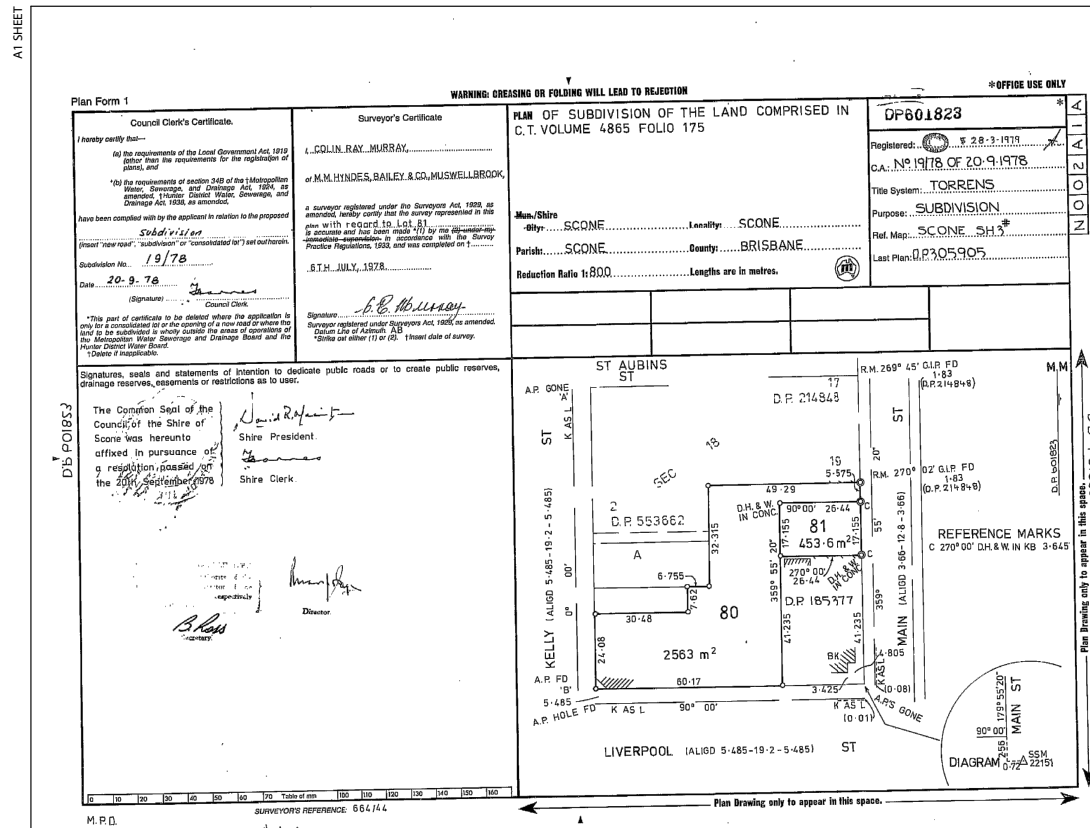 A1 SHEET
Plan Form 1
WARNING: CREASING OR FOLDING WILL LEAD TO REJECTION
*OFFICE USE ONLY
Council Clerk's Certificate.
I hereby certify that—
(a) the requirements of the Local Government Act, 1919 (other than the requirements for the registration of plans), and
*(b) the requirements of section 34B of the †Metropolitan Water, Sewerage, and Drainage Act, 1924, as amended, †Hunter District Water, Sewerage, and Drainage Act, 1938, as amended,
have been complied with by the applicant in relation to the proposed
subdivision
(insert "new road", "subdivision" or "consolidated lot") set out herein.
Subdivision No. 19/78
Date 20-9-78
(Signature)
Council Clerk.
*This part of certificate to be deleted where the application is only for a consolidated lot or the opening of a new road or where the land to be subdivided is wholly outside the areas of operations of the Metropolitan Water Sewerage and Drainage Board and the Hunter District Water Board.
†Delete if inapplicable.
Surveyor's Certificate
I, COLIN RAY MURRAY,
of M.M. HYNDES, BAILEY & CO., MUSWELLBROOK,
a surveyor registered under the Surveyors Act, 1929, as amended, hereby certify that the survey represented in this plan with regard to Lot 81
is accurate and has been made *(1) by me (2) under my immediate supervision in accordance with the Survey Practice Regulations, 1933, and was completed on †
6TH JULY, 1978.
Signature C.R. Murray
Surveyor registered under Surveyors Act, 1929, as amended.
Datum Line of Azimuth AB
*Strike out either (1) or (2). †Insert date of survey.
PLAN OF SUBDIVISION OF THE LAND COMPRISED IN
C.T. VOLUME 4865 FOLIO 175
Mun./Shire
City: SCONE Locality: SCONE
Parish: SCONE County: BRISBANE
Reduction Ratio 1: 800 Lengths are in metres.
DP601823 *
Registered: 28-3-1979
C.A.: Nº 19/78 OF 20-9-1978
Title System: TORRENS
Purpose: SUBDIVISION
Ref. Map: SCONE SH3#
Last Plan: D.P.305905
Signatures, seals and statements of intention to dedicate public roads or to create public reserves,
drainage reserves, easements or restrictions as to user.
The Common Seal of the
Council of the Shire of
Scone was hereunto
affixed in pursuance of
a resolution passed on
the 20th September 1978
Shire President.
Shire Clerk.
Director.
B. Ross
Secretary.
ST AUBINS
ST
A.P. GONE
'A'
K AS L
KELLY ST (ALIGD 5·485-19·2-5·485)
0° 00'
17
D.P. 214848
18
SEC
19
5·575
R.M. 269° 45' G.I.P. FD
1·83
(D.P. 214848)
M.M
ST
20"
R.M. 270° 02' G.I.P. FD
1·83
(D.P. 214848)
D.P. 601823
49·29
D.H. & W.
IN CONC.
90°00' 26·44
C
2
D.P. 553662
A
32·315
81
453·6 m²
17·155
17·155
55'
REFERENCE MARKS
C 270°00' D.H.& W. IN KB 3·645
6·755
7·62
30·48
80
359° 55' 20"
270° 00'
26·44
D.H. & W.
IN CONC
C
D.P. 185377
359°
MAIN (ALIGD 3·66-12·8-3·66)
24·08
2563 m²
41·235
41·235
BK
4·805
K AS L
(0·08)
A.P. FD
'B'
60·17
3·425
5·485
A.P. HOLE FD
K AS L
90° 00'
K AS L
(0·01)
A.P'S GONE
LIVERPOOL (ALIGD 5·485-19·2-5·485) ST
179°55'20"
MAIN ST
90° 00'
2·56
DIAGRAM
0·72
SSM
22151
Plan Drawing only to appear in this space.
Plan Drawing only to appear in this space.
0 10 20 30 40 50 60 70 Table of mm 100 110 120 130 140 150 160
SURVEYOR'S REFERENCE: 664/44
M.P.D.